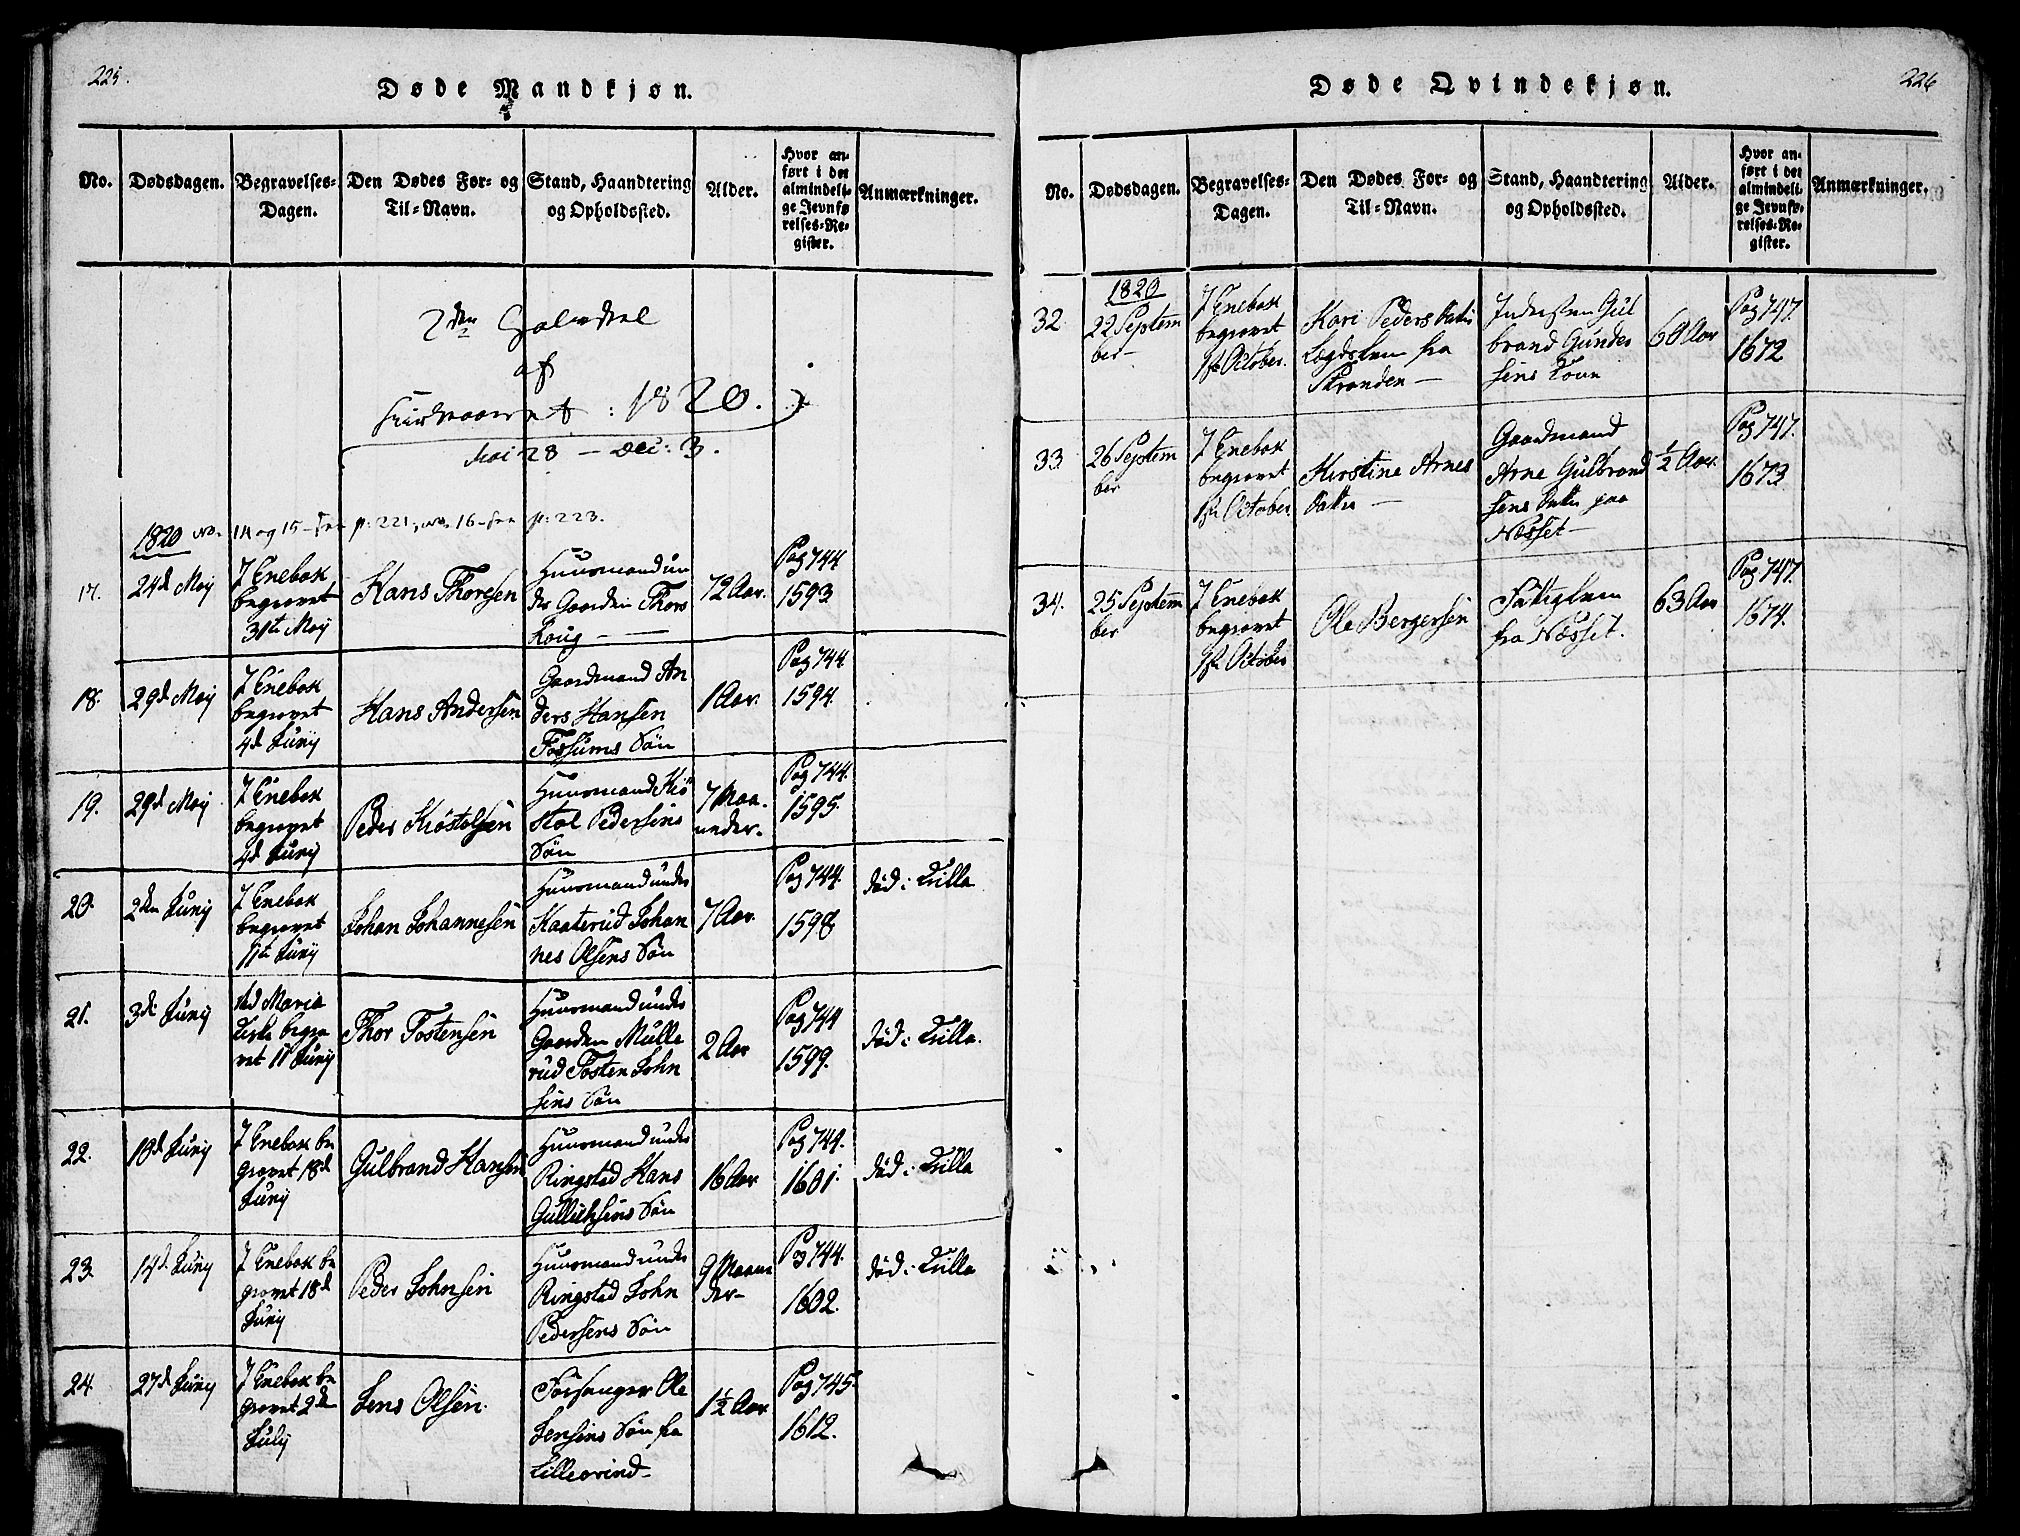 225.
Døde Mandkjøn.
No.
Dødsdagen.
Begravelses-
Dagen.
Den Dødes For- og
Til-Navn.
Stand, Haandtering
og Opholdssted.
Alder.
Hvor an-
ført i det
almindeli-
ge Jevnfø-
relses-Re-
gister.
Anmærkninger.
2den Halvdeel
af
Kirkeaaret : 1820.
Mai 28 – Dec: 3.
1820 No. 14 og 15 – see p: 221, No. 16 – see p: 223.
17.
24d Maij
I Enebak
begravet
31te Maij
Hans Thoresen
Huusmand un
der Gaarden Thors
houg
72 Aar.
Pag 744
1593.
18.
29d Maij
I Enebak
begravet
4d Junij
Hans Andersen
Gaardmand An
ders Hansen
Fossums Søn
1 Aar.
Pag 744
1594.
19.
29d Maij
I Enebak
begravet
4d Junij
Peder Kiöstolsen
Huusmand Kiö
stol Pedersens
Søn
7 Maa-
neder.
Pag 744.
1595.
20.
2den Junij
I Enebak
begravet
11te Junij
Johan Johannesen
Huusmand under
Kaaterud Johan
nes Olsens Søn
7 Aar.
Pag 744.
1598.
død i Krilla
21.
3de Junij
ved Marie
Kirke begra
vet 11 Junij
Thor Tostensen
Huusmand under
Gaarden Mulle
rud Tosten John
sens Søn
2 Aar
Pag 744
1599.
død i Krilla.
22.
10d Junij
I Enebak be
gravet 18d
Junij
Gulbrand Hansen
Huusmand under
Ringstad Hans
Gulliksens Søn
16 Aar
Pag 744.
1601.
død i Krilla
23.
14d Junij
I Enebak be
gravet 18d
Junij
Peder Johnsen
Huusmand under
Ringstad John
Pedersens Søn
9 Maane
der
Pag 744.
1602.
død i Krilla
24.
27d Junij
I Enebak be
gravet 2den
Julij
Jens Olsen
Forsanger Ole
Jensens Søn fra
1½ Aar
Pag 745.
1612.
226
Døde Qvindekjøn.
No.
Dødsdagen.
Begravelses-
Dagen.
Den Dødes For- og
Til-Navn.
Stand, Haandtering
og Opholdssted.
Alder.
Hvor an-
ført i det
almindeli-
ge Jevnfø-
relses-Re-
gister.
Anmærkninger.
1820
32.
22 Septem
ber
I Enebak
begravet
1ste October.
Kari Peders Datter
Lægdslem fra
Stranden
Inderstem Gul
brand Gunder
sens Kone
60 Aar
Pag 747.
1672
33.
26 Septem
ber
I Enebak
begravet
1ste October.
Kirstine Arnes
Datter
Gaardmand
Arne Gulbrand
sens Datter paa
Næsset
½ Aar.
Pag 747.
1673
34.
25 Septem
ber
I Enebak
begravet
1ste October
Ole Bergersen
Fattiglem
fra Næsset.
63 Aar
Pag 747.
1674.